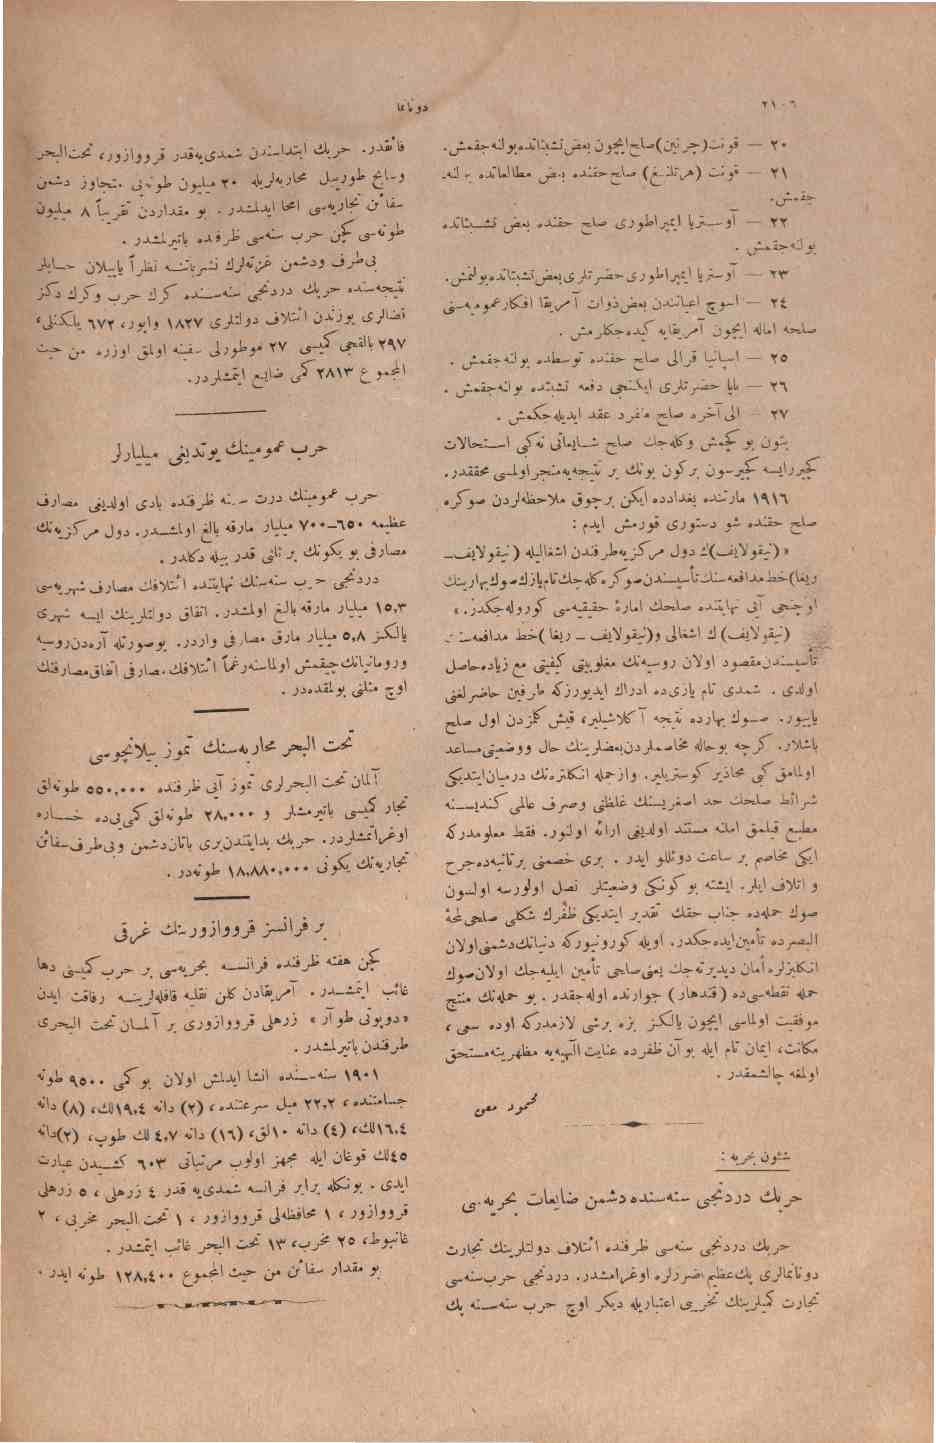 ٢١٠٦
دونانما
٢٠ — قونت (چرنین) صلح ایچون بعض تشبثاتده بولنه‌جقمش.
٢١ — قونت (هرتلنغ) صلح حقنده بعض مطالعاتده بولنه‌
جقمش.
٢٢ — آوستریا ایمپراطوری صلح حقنده بعض تشبثاتده
بولنه‌جقمش .
٢٣ — آوستریا ایمپراطوری حضرتلری بعض تشبثاتده بولنمش.
٢٤ — اسوج اعیانندن بعض ذوات آمریقا افکار عمومیه‌سنی
صلحه اماله ایچون آمریقایه کیده‌جکلرمش .
٢٥ — اسپانیا قرالی صلح حقنده توسطده بولنه‌جقمش .
٢٦ — پاپا حضرتلری ایکنجی دفعه تشبثده بولنه‌جقمش .
٢٧ — الی آخره صلح منفرد عقد ایدیله‌جکمش .
بتون بو کچمش وکله‌جك صلح شایعاتی نه‌کبی استحالات
کچیررایسه کچیرسون برکون بونك بر نتیجه‌یه منجر اولمسی محققدر.
١٩١٦ مارتنده بغدادده ایکن برچوق ملاحظه‌لردن صوکره
صلح حقنده شو دستوری قورمش ایدم :
« (نیقولایف)ك دول مرکزیه طرفندن اشغالیله (نیقولایف_
ریغا) خط مدافعه‌سنك تأسیسندن صوکره کله‌جك تام یازك صوك بهارینك
اوچنجی آیی نهایتنده صلحك امارهٔ حقیقیه‌سی کوروله‌جکدر. »
(نیقولایف) ك اشغالی و(نیقولایف _ ریغا) خط مدافعه‌سنك
تأسیسندن مقصود اولان روسیه‌نك مغلوبیتی کیفیتی مع زیاده حاصل
اولدی . شمدی تام یازی‌ده ادراك ایدیورزکه طرفین حاضرلغنی
یاپیور. صوك بهارده نتیجه آکلاشیلیر، قیش کلمزدن اول صلح
باشلار. کرچه بوحاله مخاصملردن بعضلرینك حال ووضعیتی مساعد
اولمامق کبی محاذیر کوستریلیر. وازجمله انکلتره‌نك درمیان ایتدیکی
شرائط صلحك حد اصغریسنك غلظتی وصرف عالمی کندیسنه
مطیع قیلمق املنه مستند اولدیغی ارائه اولنور. فقط معلومدرکه
ایکی مخاصم بر ساعت دوئللو ایدر . بری خصمنی برثانیه‌ده جرح
و اتلاف ایلر. ایشته بو کونکی وضعیتلر نصل اولورسه اولسون
صوك حمله‌ده جناب حقك تقدیر ایتدیکی ظفرك شکلی صلحی لمحهٔ
البصرده تأمین ایده‌جکدر. اویله کورونیورکه دنیانك دشمنی اولان
انکلیزلره أمان دیدیرته‌جك یعنی صلحی تأمین ایلیه‌جك اولان صوك
حمله نقطه‌سی‌ده (قندهار) جوارنده اوله‌جقدر. بو حمله‌نك منتج
موفقیت اولماسی ایچون یالکز بزه برشی لازمدرکه اوده سعی،
مکانت، ایمان تام ایله بو آن ظفرده عنایت الٓهیه‌یه مظهریته مستحق
اولمغه چالشمقدر .
محمود
شئون بحریه :
حربك دردنجی سنه‌سنده دشمن ضایعات بحریه‌سی
حربك دردنجی سنه‌سی ظرفنده ائتلاف دولتلرینك تجارت
دونانمالری پك عظیم ضررلره اوغرامشدر. دردنجی حرب سنه‌سی
تجارت کمیلرینك تخریبی اعتباریله دیکر اوچ حرب سنه‌سنه پك
فائقدر. حربك ابتداسندن شمدی‌یه‌قدر قرووازور، تحت‌البحر
وسابح طورپیل محاربه‌لریله ٢٠ میلیون طونه‌یی متجاوز دشمن
سفائن تجاریه‌سی امحا ایدلمشدر. بو مقداردن تقریباً ٨ میلیون
طونه‌سی کچن حرب سنه‌سی ظرفنده باتیرلمشدر .
بی‌طرف ودشمن غزته‌لرك نشریاتنه نظراً یاپیلان حسابلر
نتیجه‌سنده حربك دردنجی سنه‌سنده کرك حرب وکرك دکز
قضالری یوزندن ائتلاف دولتلری ١٨٢٧ واپور، ٦٧٢ یلکنلی،
٢٩٧ بالقجی کمیسی ٢٧ موطورلی سفینه اولمق اوزره من حیث
المجموع ٢٨١٣ کمی ضایع ایتمشلردر.
حرب عمومینك یوتدیغی میلیارلر
حرب عمومینك درت سنه ظرفنده بادی اولدیغی مصارف
عظیمه ٦٥٠_٧٠٠ میلیار مارقه بالغ اولمشدر. دول مرکزیه‌نك
مصارفی بو یکونك بر ثلثی قدر بیله دکلدر .
دردنجی حرب سنه‌سنك نهایتنده ائتلافك مصارف شهریه‌سی
١٥,٣ میلیار مارقه بالغ اولمشدر. اتفاق دولتلرینك ایسه شهری
یالکز ٥,٨ میلیار مارق مصارفی واردر. بوصورتله آره‌دن روسیه
ورومانیانك چیقمش اولماسنه رغماً ائتلافك مصارفی اتفاق مصارفنك
اوچ مثلنی بولمقده‌در .
تحت البحر محاربه‌سنك تموز بیلانچوسی
آلمان تحت البحرلری تموز آیی ظرفنده ٥٥٠,٠٠٠ طونه‌لق
تجار کمیسی باتیرمشلر و ٢٨,٠٠٠ طونه‌لق کمی‌یی‌ده خساره
اوغراتمشلردر. حربك بدایتندن‌بری باتان دشمن وبی‌طرف سفائن
تجاریه‌نك یکونی ١٨,٨٨٠,٠٠٠ طونه‌در .
بر فرانسز قرووازورینك غرقی
کچن هفته ظرفنده فرانسه بحریه‌سی بر حرب کمیسی دها
غائب ایتمشدر. آمریقادن کلن نقلیه قافله‌لرینه رفاقت ایدن
«دوپوتی طوآر» زرهلی قرووازوری بر آلمان تحت البحری
طرفندن باتیرلمشدر .
١٩٠١ سنه‌سنده انشا ایدلمش اولان بو کمی ٩٥٠٠ طونه
جسامتنده، ٢٢,٢ میل سرعتنده، (٢) دانه ١٩,٤لك، (٨) دانه
١٦,٤لك، (٤) دانه ١٠لق، (١٦) دانه ٤,٧ لك طوپ، (٢) دانه
٤٥لك قوغان ایله مجهز اولوب مرتباتی ٦٠٣ کشیدن عبارت
ایدی . بونکله برابر فرانسه شمدی‌یه قدر ٤ زرهلی ، ٥ زرهلی
قرووازور ، ١ محافظه‌لی قرووازور ، ١ تحت البحر مخربی ، ٢
غانبوط، ٢٥ مخرب، ١٣ تحت البحر غائب ایتمشدر .
بو مقدار سفائن من حیث المجموع ١٢٨,٤٠٠ طونه ایدر .